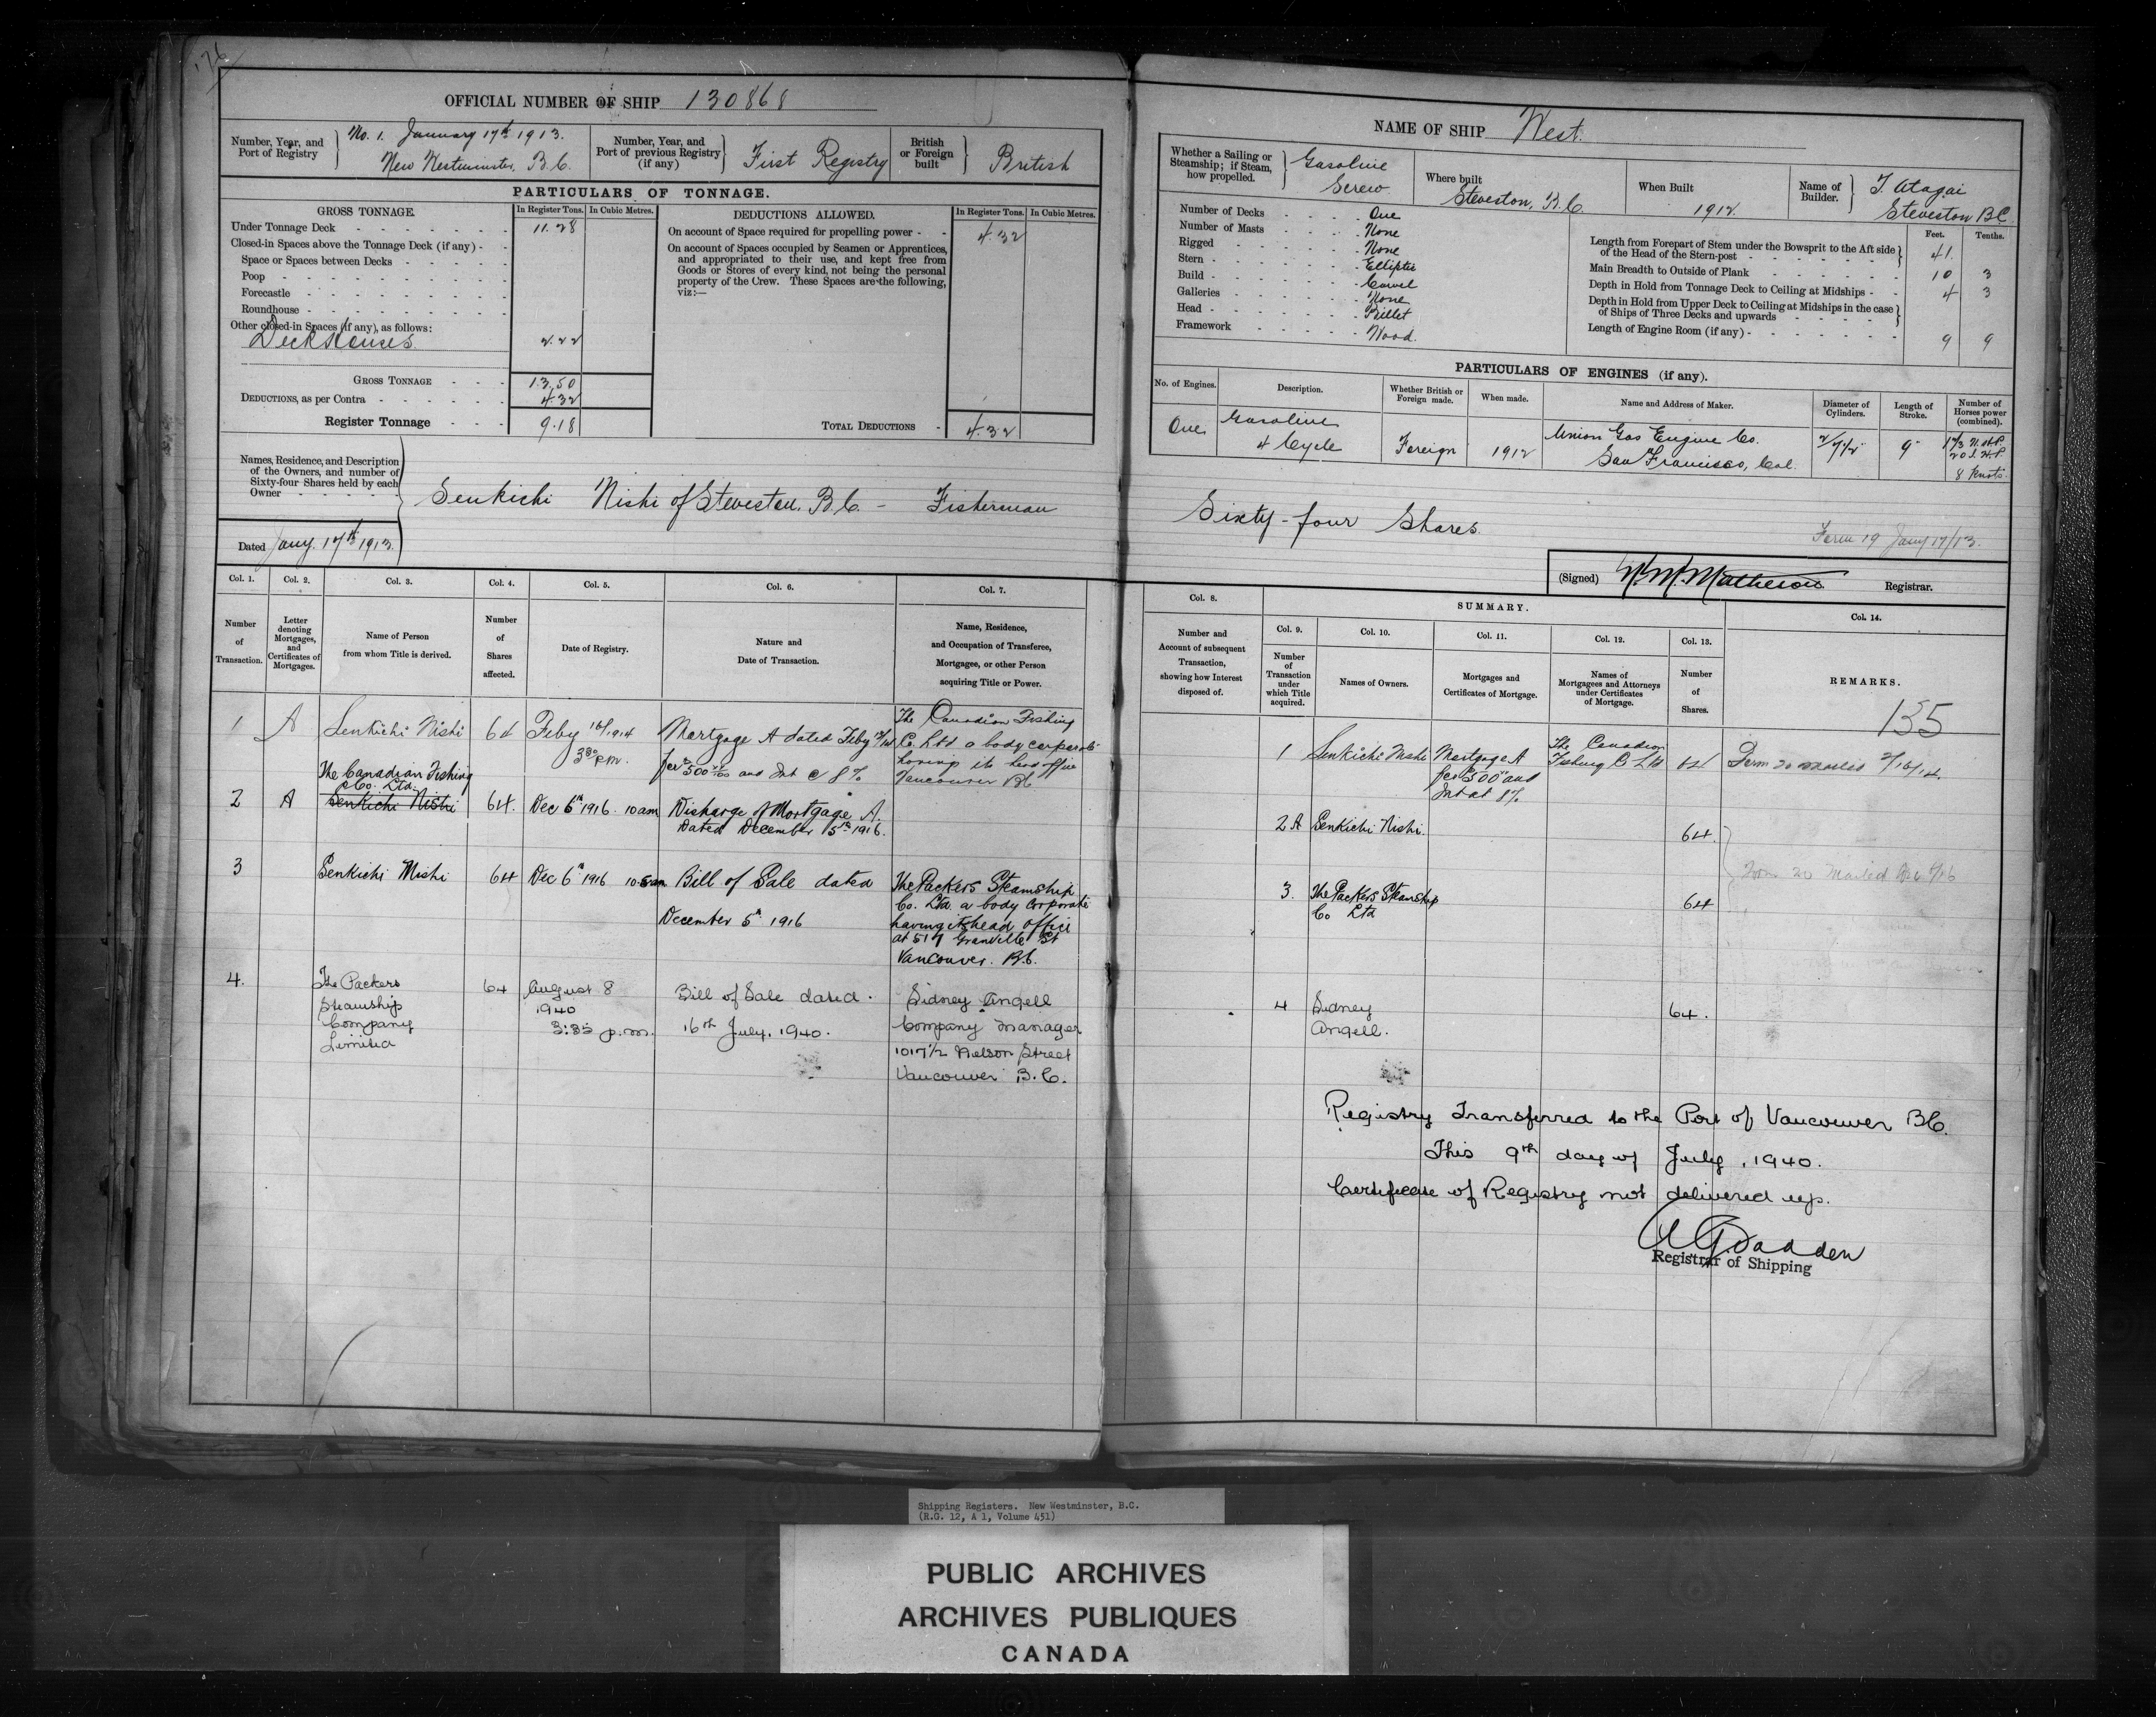 176
OFFICIAL NUMBER OF SHIP 130868
Number, Year, and Port of Registry
No. 1. January 17th 1913.
New Westminster, B.C.
Number, Year, and Port of previous Registry (if any)
First Registry
British or Foreign built
British
PARTICULARS OF TONNAGE.
GROSS TONNAGE. In Register Tons. In Cubic Metres.
Under Tonnage Deck 11.28
Closed-in Spaces above the Tonnage Deck (if any)
Space or Spaces between Decks
Poop
Forecastle
Roundhouse
Other closed-in Spaces (if any), as follows:
Deck Houses 2.22
GROSS TONNAGE 13.50
DEDUCTIONS, as per Contra 4.32
Register Tonnage 9.18
DEDUCTIONS ALLOWED. In Register Tons. In Cubic Metres.
On account of Space required for propelling power 4.32
On account of Spaces occupied by Seamen or Apprentices,
and appropriated to their use, and kept free from
Goods or Stores of every kind, not being the personal
property of the Crew. These Spaces are the following,
viz:—
TOTAL DEDUCTIONS 4.32
Names, Residence, and Description
of the Owners, and number of
Sixty-four Shares held by each
Owner
Senkichi Nishi of Steveston, B.C. - Fisherman
Dated Jany. 17th 1913.
NAME OF SHIP West.
Whether a Sailing or Steamship; if Steam, how propelled.
Gasoline
Screw
Where built
Steveston, B.C.
When Built
1912
Name of Builder.
T. Atagai
Steveston BC.
Number of Decks One
Number of Masts None
Rigged None
Stern Elliptic
Build Carvel
Galleries None
Head Billet
Framework Wood.
Feet. Tenths.
Length from Forepart of Stem under the Bowsprit to the Aft side
of the Head of the Stern-post 41.
Main Breadth to Outside of Plank 10 3
Depth in Hold from Tonnage Deck to Ceiling at Midships 4 3
Depth in Hold from Upper Deck to Ceiling at Midships in the case
of Ships of Three Decks and upwards
Length of Engine Room (if any) 9 9
PARTICULARS OF ENGINES (if any).
No. of Engines. Description. Whether British or Foreign made. When made. Name and Address of Maker. Diameter of Cylinders. Length of Stroke. Number of Horses power (combined).
One Gasoline 4 Cycle Foreign 1912 Union Gas Engine Co.
San Francisco, Cal. 9"
20 I.H.P
8 Knots.
Sixty-four Shares.
Form 19 Jany 17/13.
(Signed) Matheson Registrar.
Col. 1. Col. 2. Col. 3. Col. 4. Col. 5. Col. 6. Col. 7.
Number of Transaction.
Letter denoting Mortgages, and Certificates of Mortgages.
Name of Person from whom Title is derived.
Number of Shares affected.
Date of Registry.
Nature and Date of Transaction.
Name, Residence, and Occupation of Transferee, Mortgagee, or other Person acquiring Title or Power.
1 A Senkichi Nishi 64 Feby 16/1914
3.30 P.M.
Mortgage A dated Feby 12/14
for $500 00/100 and Int @ 8%
The Canadian Fishing
Co. Ltd a body corporate
having its head office
Vancouver BC
2 A The Canadian Fishing
Co. Ltd.
Senkichi Nishi
64. Dec 6th 1916. 10 am
Discharge of Mortgage A.
Dated December 5th 1916.
3 Senkichi Nishi 64 Dec 6th 1916 10.5 am
Bill of Sale dated
December 5th 1916
The Packers Steamship
Co. Ltd. a body corporate
having its head office
at 517 Granville St
Vancouver. B.C.
4. The Packers
Steamship
Company
Limited
64 August 8
1940
3:35 p.m.
Bill of Sale dated.
16th July, 1940.
Sidney Angell
Company Manager
1017½ Nelson Street
Vancouver B.C.
Col. 8.
Number and Account of subsequent Transaction, showing how Interest disposed of.
SUMMARY.
Col. 9. Col. 10. Col. 11. Col. 12. Col. 13. Col. 14.
Number of Transaction under which Title acquired.
Names of Owners.
Mortgages and Certificates of Mortgage.
Names of Mortgagees and Attorneys under Certificates of Mortgage.
Number of Shares.
REMARKS.
135
1 Senkichi Nishi Mortgage A
for $500 and
Int at 8%
The Canadian
Fishing Co Ltd
64 Form 20 mailed 2/16/14.
2 A Senkichi Nishi. 64.
Form 20 Mailed Dec 6/16
3. The Packers Steamship
Co Ltd 64
4 Sidney
Angell. 64.
Registry Transferred to the Port of Vancouver BC.
This 9th day of July, 1940.
Certificate of Registry not delivered up.
Registrar of Shipping
Shipping Registers. New Westminster, B.C.
(R.G. 12, A 1, Volume 451)
PUBLIC ARCHIVES
ARCHIVES PUBLIQUES
CANADA